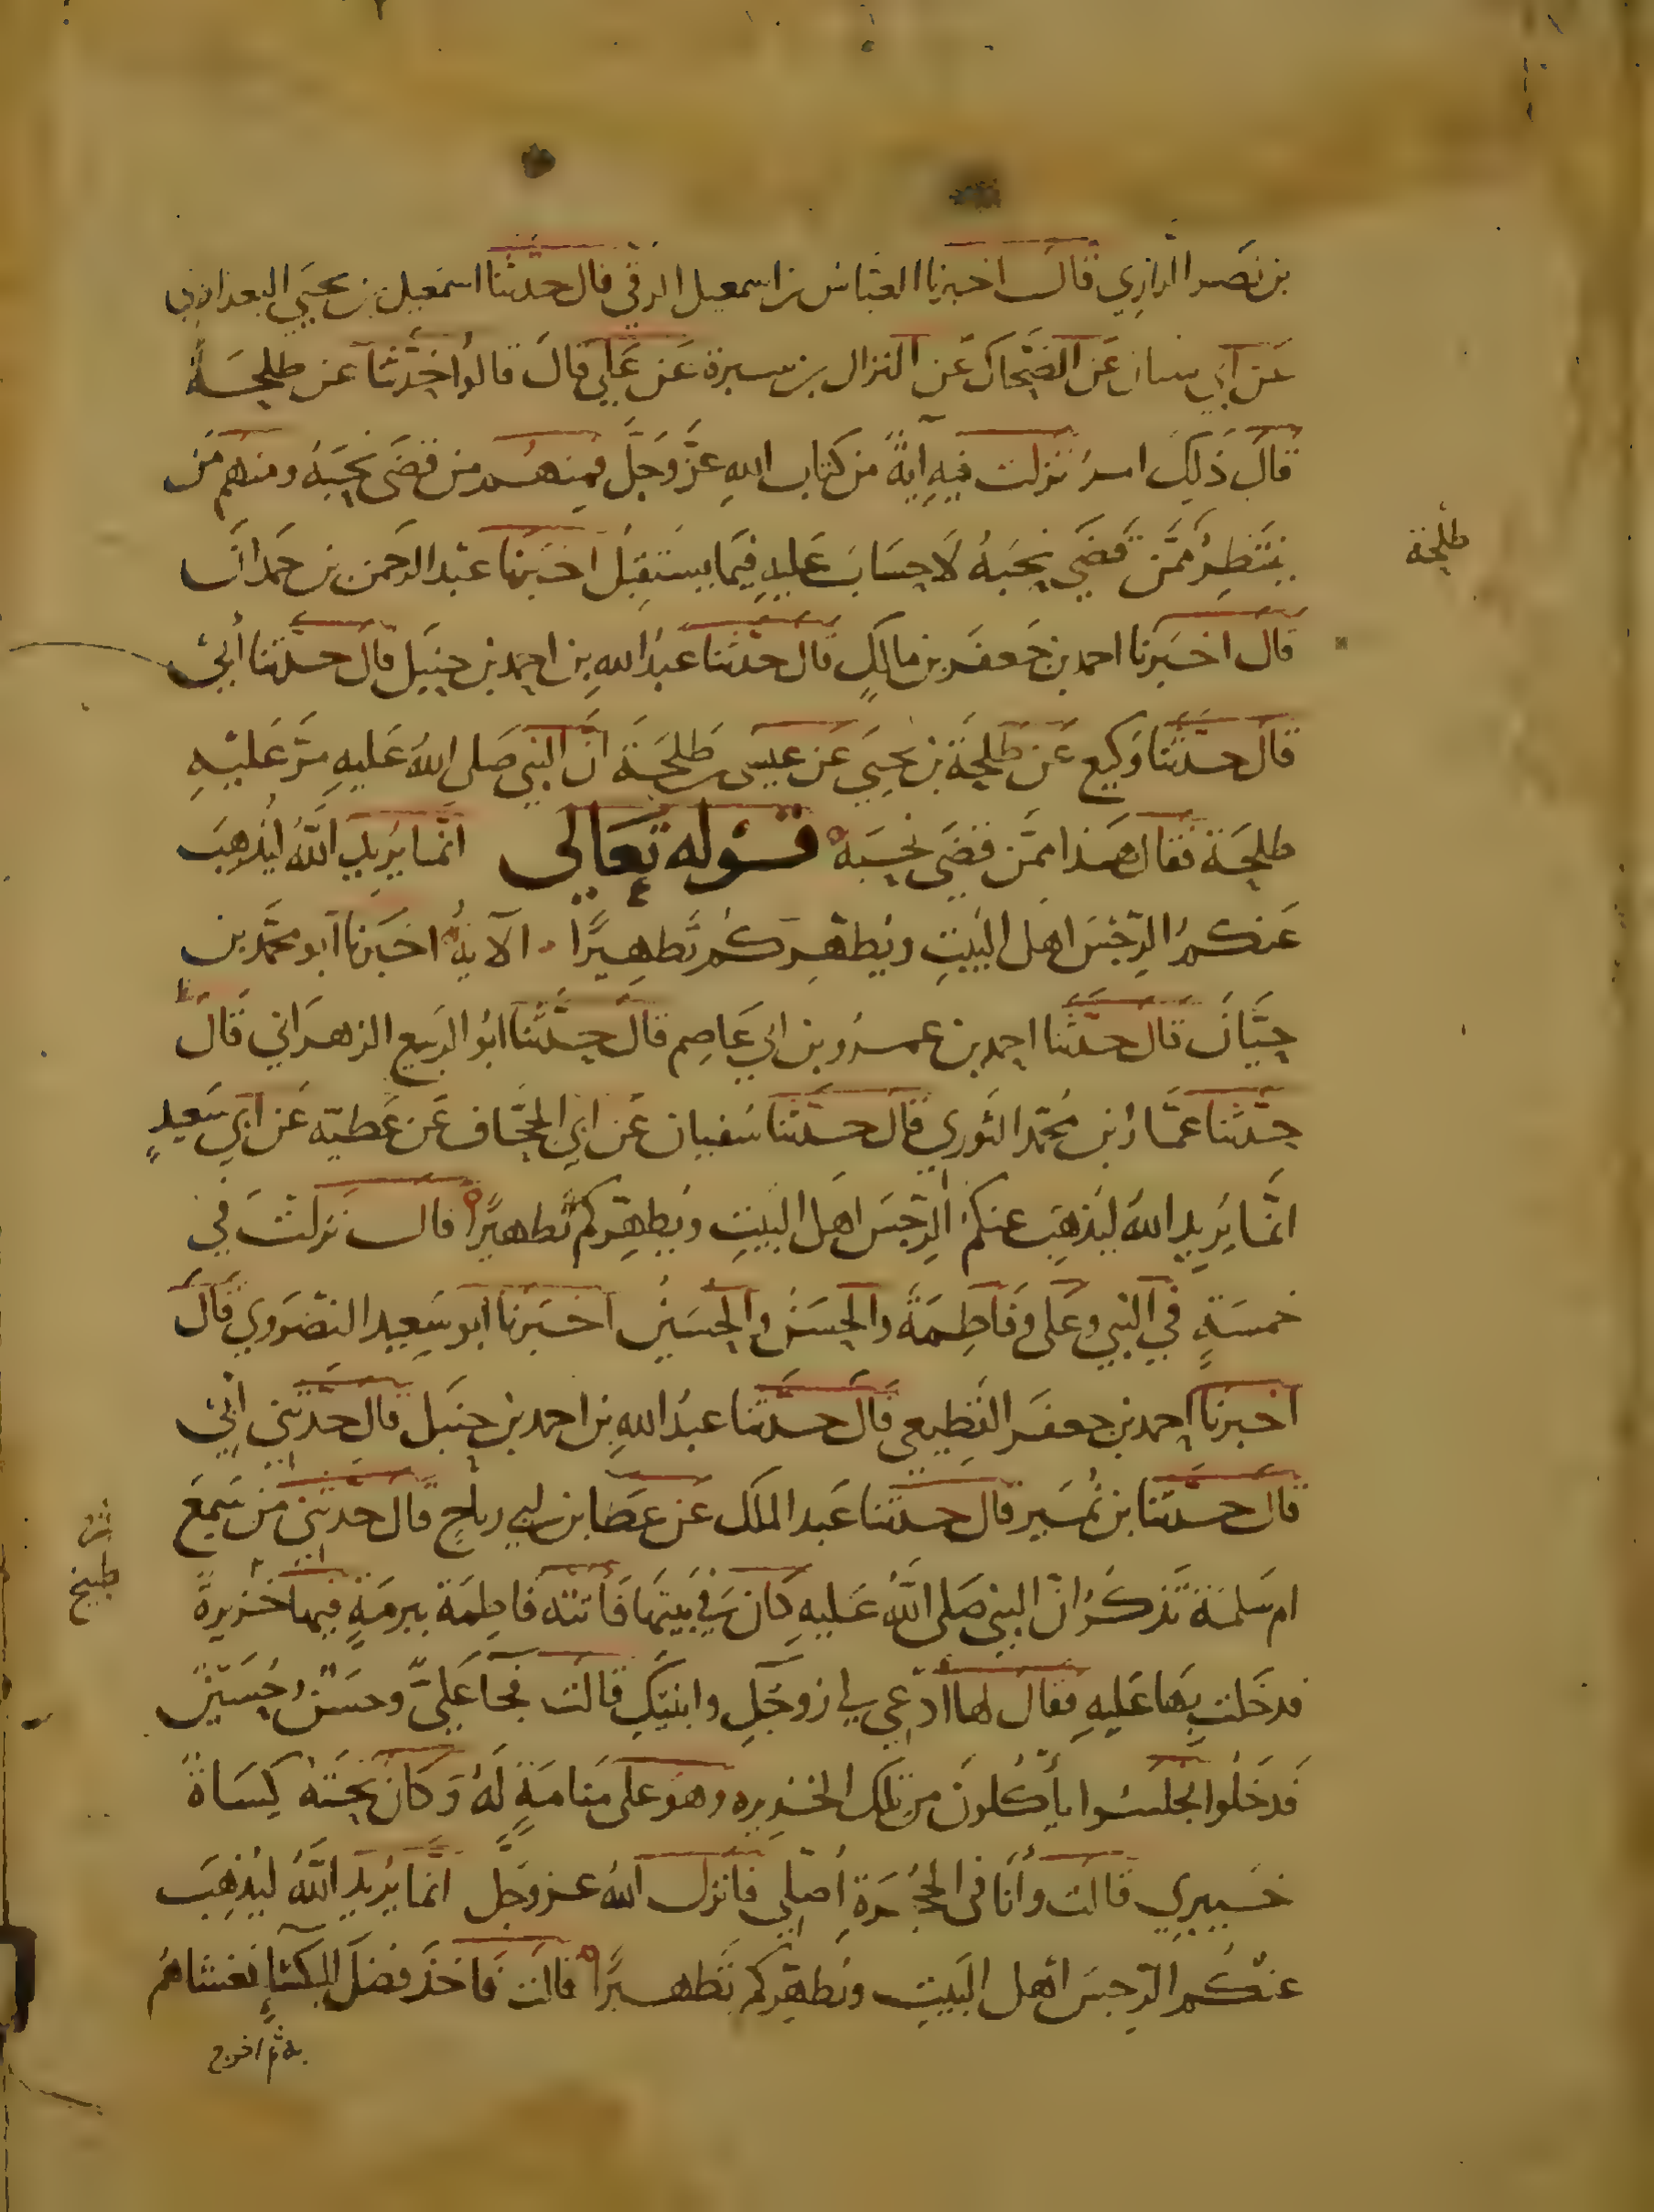 بن نصر الرازي قال اخبرنا العباس بن اسمعيل الرقي قال حدثنا اسمعيل بن يحيى البغدادي
عن ابي سنان عن الضحاك عن النزال بن سبرة عن علي قال قالوا حدثنا عن طلحة
قال ذلك امرؤ نزلت فيه آية من كتاب الله عز وجل فمنهم من قضى نحبه ومنهم من
ينتظر ممن قضى نحبه لا حساب عليه فيما يستقبل اخبرنا عبد الرحمن بن حمدان
طلحة
قال اخبرنا احمد بن جعفر بن مالك قال حدثنا عبد الله بن احمد بن حنبل قال حدثنا أبي
قال حدثنا وكيع عن طلحة بن يحيى عن عيسى بن طلحة ان النبي صلى الله عليه مر عليه
طلحة فقال هذا ممن قضى نحبه قوله تعالى انما يريد الله ليذهب
عنكم الرجس اهل البيت ويطهركم تطهيرا الآية اخبرنا ابو محمد بن
حيان قال حدثنا احمد بن عمرو بن ابي عاصم قال حدثنا ابو الربيع الزهراني قال
حدثنا عمار بن محمد الثوري قال حدثنا سفيان عن ابي الجحاف عن عطية عن ابي سعيد
انما يريد الله ليذهب عنكم الرجس اهل البيت ويطهركم تطهيرا قال نزلت في
خمسة في النبي وعلى وفاطمة والحسن والحسين اخبرنا ابو سعيد النضروي قال
اخبرنا احمد بن جعفر القطيعي قال حدثنا عبد الله بن احمد بن حنبل قال حدثني أبي
قال حدثنا بن نمير قال حدثنا عبد الملك عن عطا بن ابي رباح قال حدثني من سمع
ام سلمة تذكر ان النبي صلى الله عليه كان في بيتها فاتته فاطمة ببرمة فيها خزيرة
طبيخ
فدخلت بها عليه فقال لها ادعي لي زوجك وابنيك قالت فجا علي وحسن وحسين
فدخلوا فجلسوا يأكلون من تلك الخزيره وهو على منامة له وكان تحته كساة
خيبري قالت وأنا في الحجرة اصلي فانزل الله عز وجل انما يريد الله ليذهب
عنكم الرجس اهل البيت ويطهركم تطهيرا قالت فاخذ فضل الكسا فغشاهم
به ثم اخرج